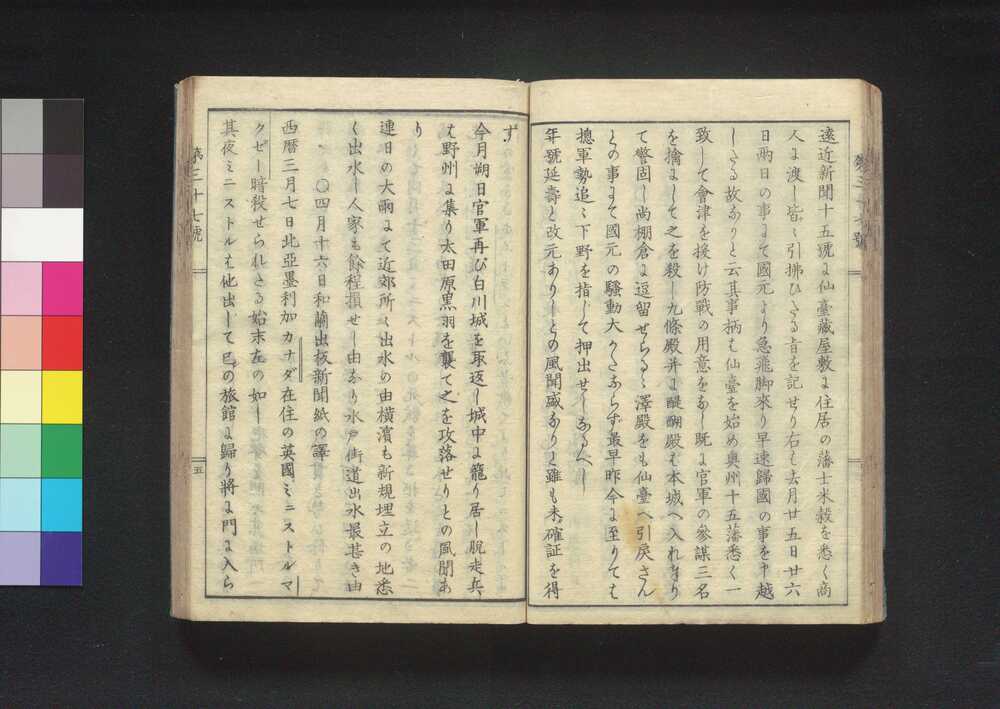 遠近新聞十五號に仙臺藏屋敷に住居の藩士米穀を悉く商
人に渡し皆〻引拂ひたる旨を記せり右は去月廿五日廿六
日兩日の事にて國元より急飛脚來り早速歸國の事を申越
したる故なりと云其事柄は仙臺を始め奥州十五藩悉く一
致して會津を援け防戰の用意をなし既に官軍の參謀三名
を擒にして之を殺し九條殿并に醍醐殿は本城へ入れまり
て警固し尚棚倉に逗留せらるゝ澤殿をも仙臺へ引戻さん
との事にて國元の騷動大かたならず最早昨今に至りては
摠軍勢追〻下野を指して押出せしなるべし
年號延壽と改元ありしとの風聞盛なりと雖も未確証を得
ず
今月朔日官軍再び白川城を取返し城中に籠り居し脱走兵
は野州に集り太田原黒羽を襲て之を攻落せりとの風聞あ
り
連日の大雨にて近郊所〻出水の由横濱も新規埋立の地悉
く出水し人家も餘程損せし由なり水戸街道出水最甚き由
〇四月十六日和蘭出板新聞紙の譯
西暦三月七日北亞墨利加カナダ在住の英國ミニストルマ
クゼー暗殺せられたる始末左の如し
其夜ミニストルは他出して已の旅館に歸り將に門に入ら
第三十七號
五